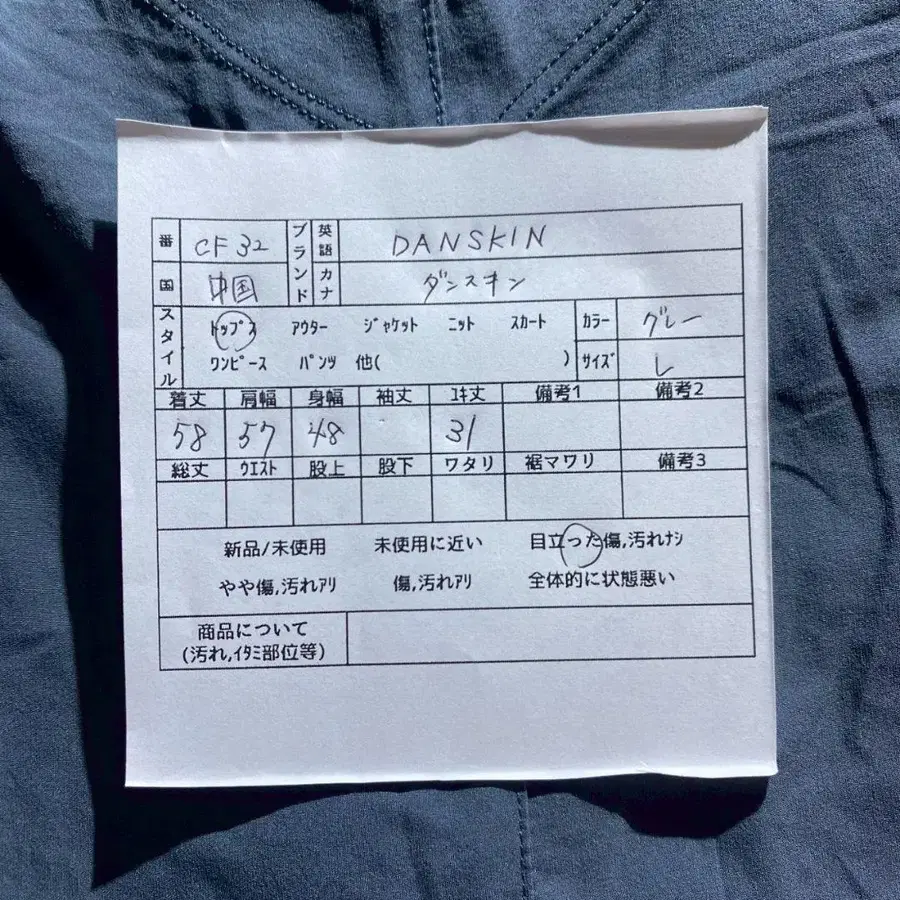 番 CF32 ブランド 英語 DANSKIN
国 中国 カナ ダンスキン
スタイル ﾄｯﾌﾟｽ ｱｳﾀｰ ｼﾞｬｹｯﾄ ﾆｯﾄ ｽｶｰﾄ ｶﾗｰ グレー
ﾜﾝﾋﾟｰｽ ﾊﾟﾝﾂ 他( ) ｻｲｽﾞ L
着丈 肩幅 身幅 袖丈 ﾕｷ丈 備考1 備考2
58 57 48 31
総丈 ｳｴｽﾄ 股上 股下 ワタリ 裾マワリ 備考3
新品/未使用 未使用に近い 目立った傷,汚れﾅｼ
やや傷,汚れｱﾘ 傷,汚れｱﾘ 全体的に状態悪い
商品について
(汚れ,ｲﾀﾐ部位等)